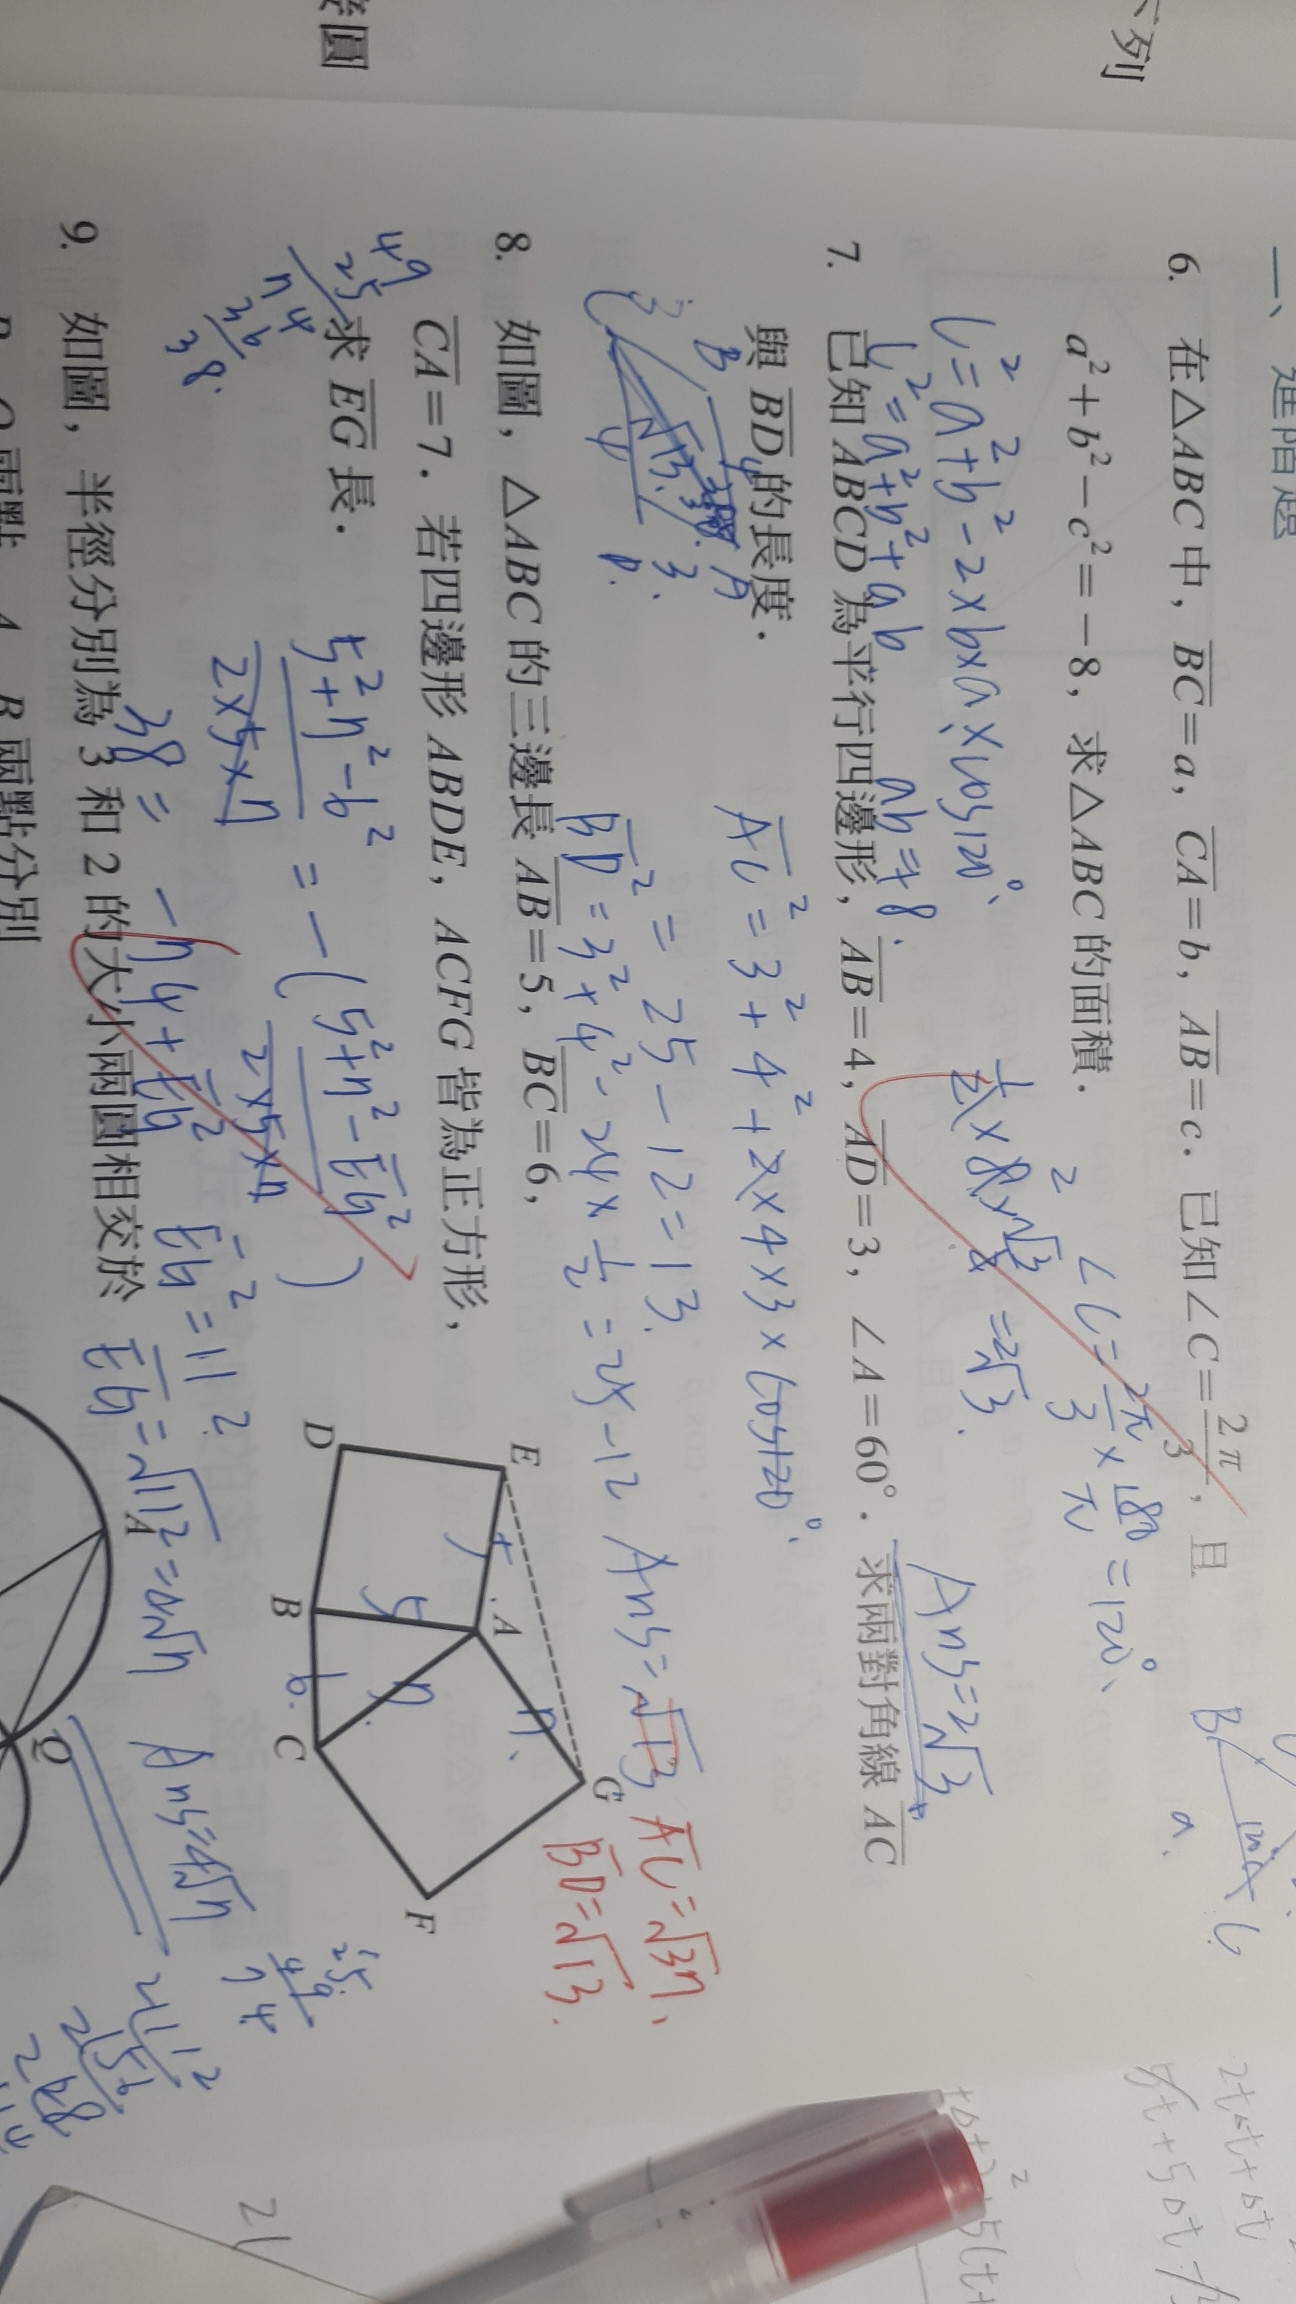 一、進階題
6. 在△ABC中，BC=a，CA=b，AB=c．已知∠C=2π/3，且
a²+b²-c²=-8，求△ABC的面積．
c²=a²+b²-2×b×a×cos120°
c²=a²+b²+ab
ab=+8.
∠C=2π/3×180/π=120°
=2√3.
Ans=2√3
7. 已知ABCD為平行四邊形，AB=4，AD=3，∠A=60°．求兩對角線AC
與BD的長度．
AC²=3²+4²+2×4×3×cos120°
BD²=25-12=13.
BD²=3²+4²-24×1/2=25-12
Ans=√13
AC=√37、
BD=√13.
8. 如圖，△ABC的三邊長AB=5，BC=6，
CA=7．若四邊形ABDE，ACFG皆為正方形，
求EG長．
5²+7²-6²/2×5×7=-(5²+7²-EG²/2×5×7)
38=-74+EG²
EG²=112
EG=√112=4√7
Ans=4√7
49
25
74
36
38.
E
D
A
B
C
G
F
5
5
6.
7.
7、
25.
49
74
9. 如圖，半徑分別為3和2的大小兩圓相交於
A
Q
兩點分別
列
圓
21